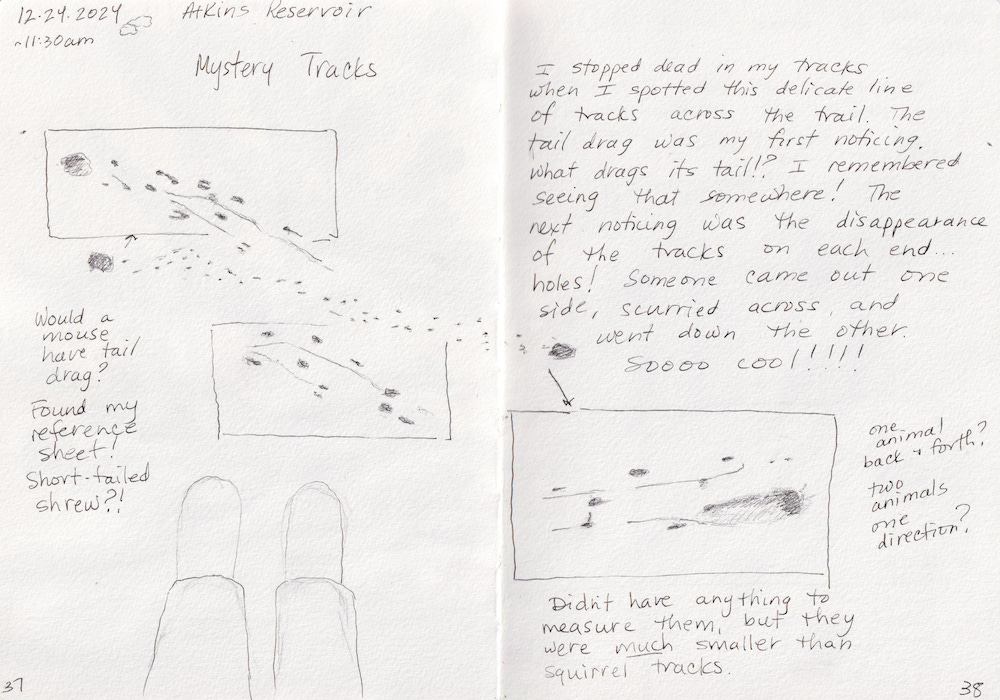 12.24.2024
~11:30am
Atkins Reservoir
Mystery Tracks
Would a
mouse
have tail
drag?
Found my
reference
sheet!
Short-tailed
shrew?!
37
I stopped dead in my tracks
when I spotted this delicate line
of tracks across the trail. The
tail drag was my first noticing.
What drags its tail!? I remembered
seeing that somewhere! The
next noticing was the disappearance
of the tracks on each end...
holes! Someone came out one
side, scurried across, and
went down the other.
Soooo cool!!!!!
one
animal
back + forth?
two
animals
one
direction?
Didn't have anything to
measure them, but they
were much smaller than
squirrel tracks.
38